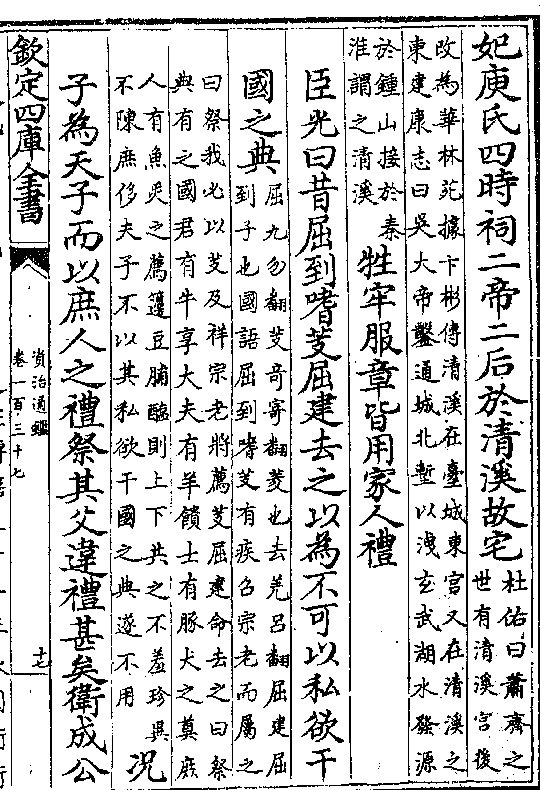 妃庾氏四時祠二帝二后於清溪故宅
杜佑曰蕭齊之
世有清溪宮後
改為華林苑據卞彬傳清溪在臺城東宮又在清溪之
東建康志曰吳大帝鑿通城北塹以洩玄武湖水發源
於鍾山接於秦
淮謂之清溪
牲牢服章皆用家人禮
臣光曰昔屈到嗜芰屈建去之以為不可以私欲干
國之典
屈九勿翻芰奇寄翻菱也去羌呂翻屈建屈
到子也國語屈到嗜芰有疾召宗老而屬之
曰祭我必以芰及祥宗老將薦芰屈建命去之曰祭
典有之國君有牛享大夫有羊饋士有豚犬之奠庶
人有魚炙之薦籩豆脯醢則上下共之不羞珍異
不陳庶侈夫子不以其私欲干國之典遂不用
况
子為天子而以庶人之禮祭其父違禮甚矣衛成公
欽定四庫全書
資治通鑑
卷一百三十七
十七